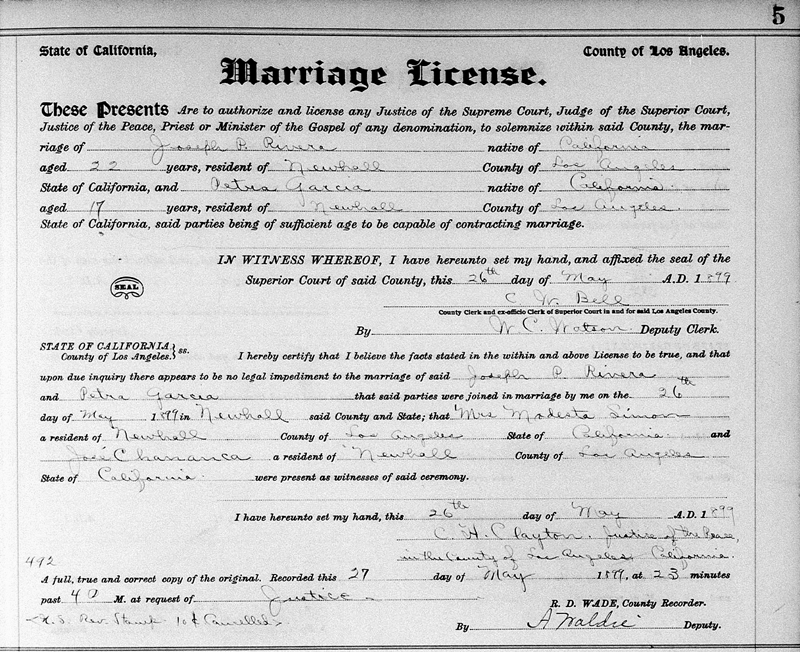 5
State of California,	County of Los Angeles.
Marriage License.
These Presents Are to authorize and license any Justice of the Supreme Court, Judge of the Superior Court,
Justice of the Peace, Priest or Minister of the Gospel of any denomination, to solemnize within said County, the mar-
riage of Joseph P. Rivera native of California
aged 22 years, resident of Newhall County of Los Angeles
State of California, and Petra Garcia native of California.
aged 17 years, resident of Newhall County of Los Angeles.
State of California, said parties being of sufficient age to be capable of contracting marriage.
IN WITNESS WHEREOF, I have hereunto set my hand, and affixed the seal of the
SEAL Superior Court of said County, this 26th day of May A.D. 1899
C. W. Bell
County Clerk and ex-officio Clerk of Superior Court in and for said Los Angeles County.
By W. C. Watson. Deputy Clerk.
STATE OF CALIFORNIA
County of Los Angeles. } ss. I hereby certify that I believe the facts stated in the within and above License to be true, and that
upon due inquiry there appears to be no legal impediment to the marriage of said Joseph P. Rivera
and Petra Garcia that said parties were joined in marriage by me on the 26th
day of May 1899 in Newhall said County and State; that Mrs Modesta Simon
a resident of Newhall County of Los Angeles State of California. and
José a resident of Newhall County of Los Angeles
State of California. were present as witnesses of said ceremony.
I have hereunto set my hand, this 26th day of May A.D. 1899
C. H. Clayton. Justice of the Peace,
in the County of Los Angeles, California.
492
A full, true and correct copy of the original. Recorded this 27 day of May 1899, at 23 minutes
past 4 M. at request of Justice.
R. D. WADE, County Recorder.
Rev. Stamp 10¢ Cancelled. By A Waldie Deputy.